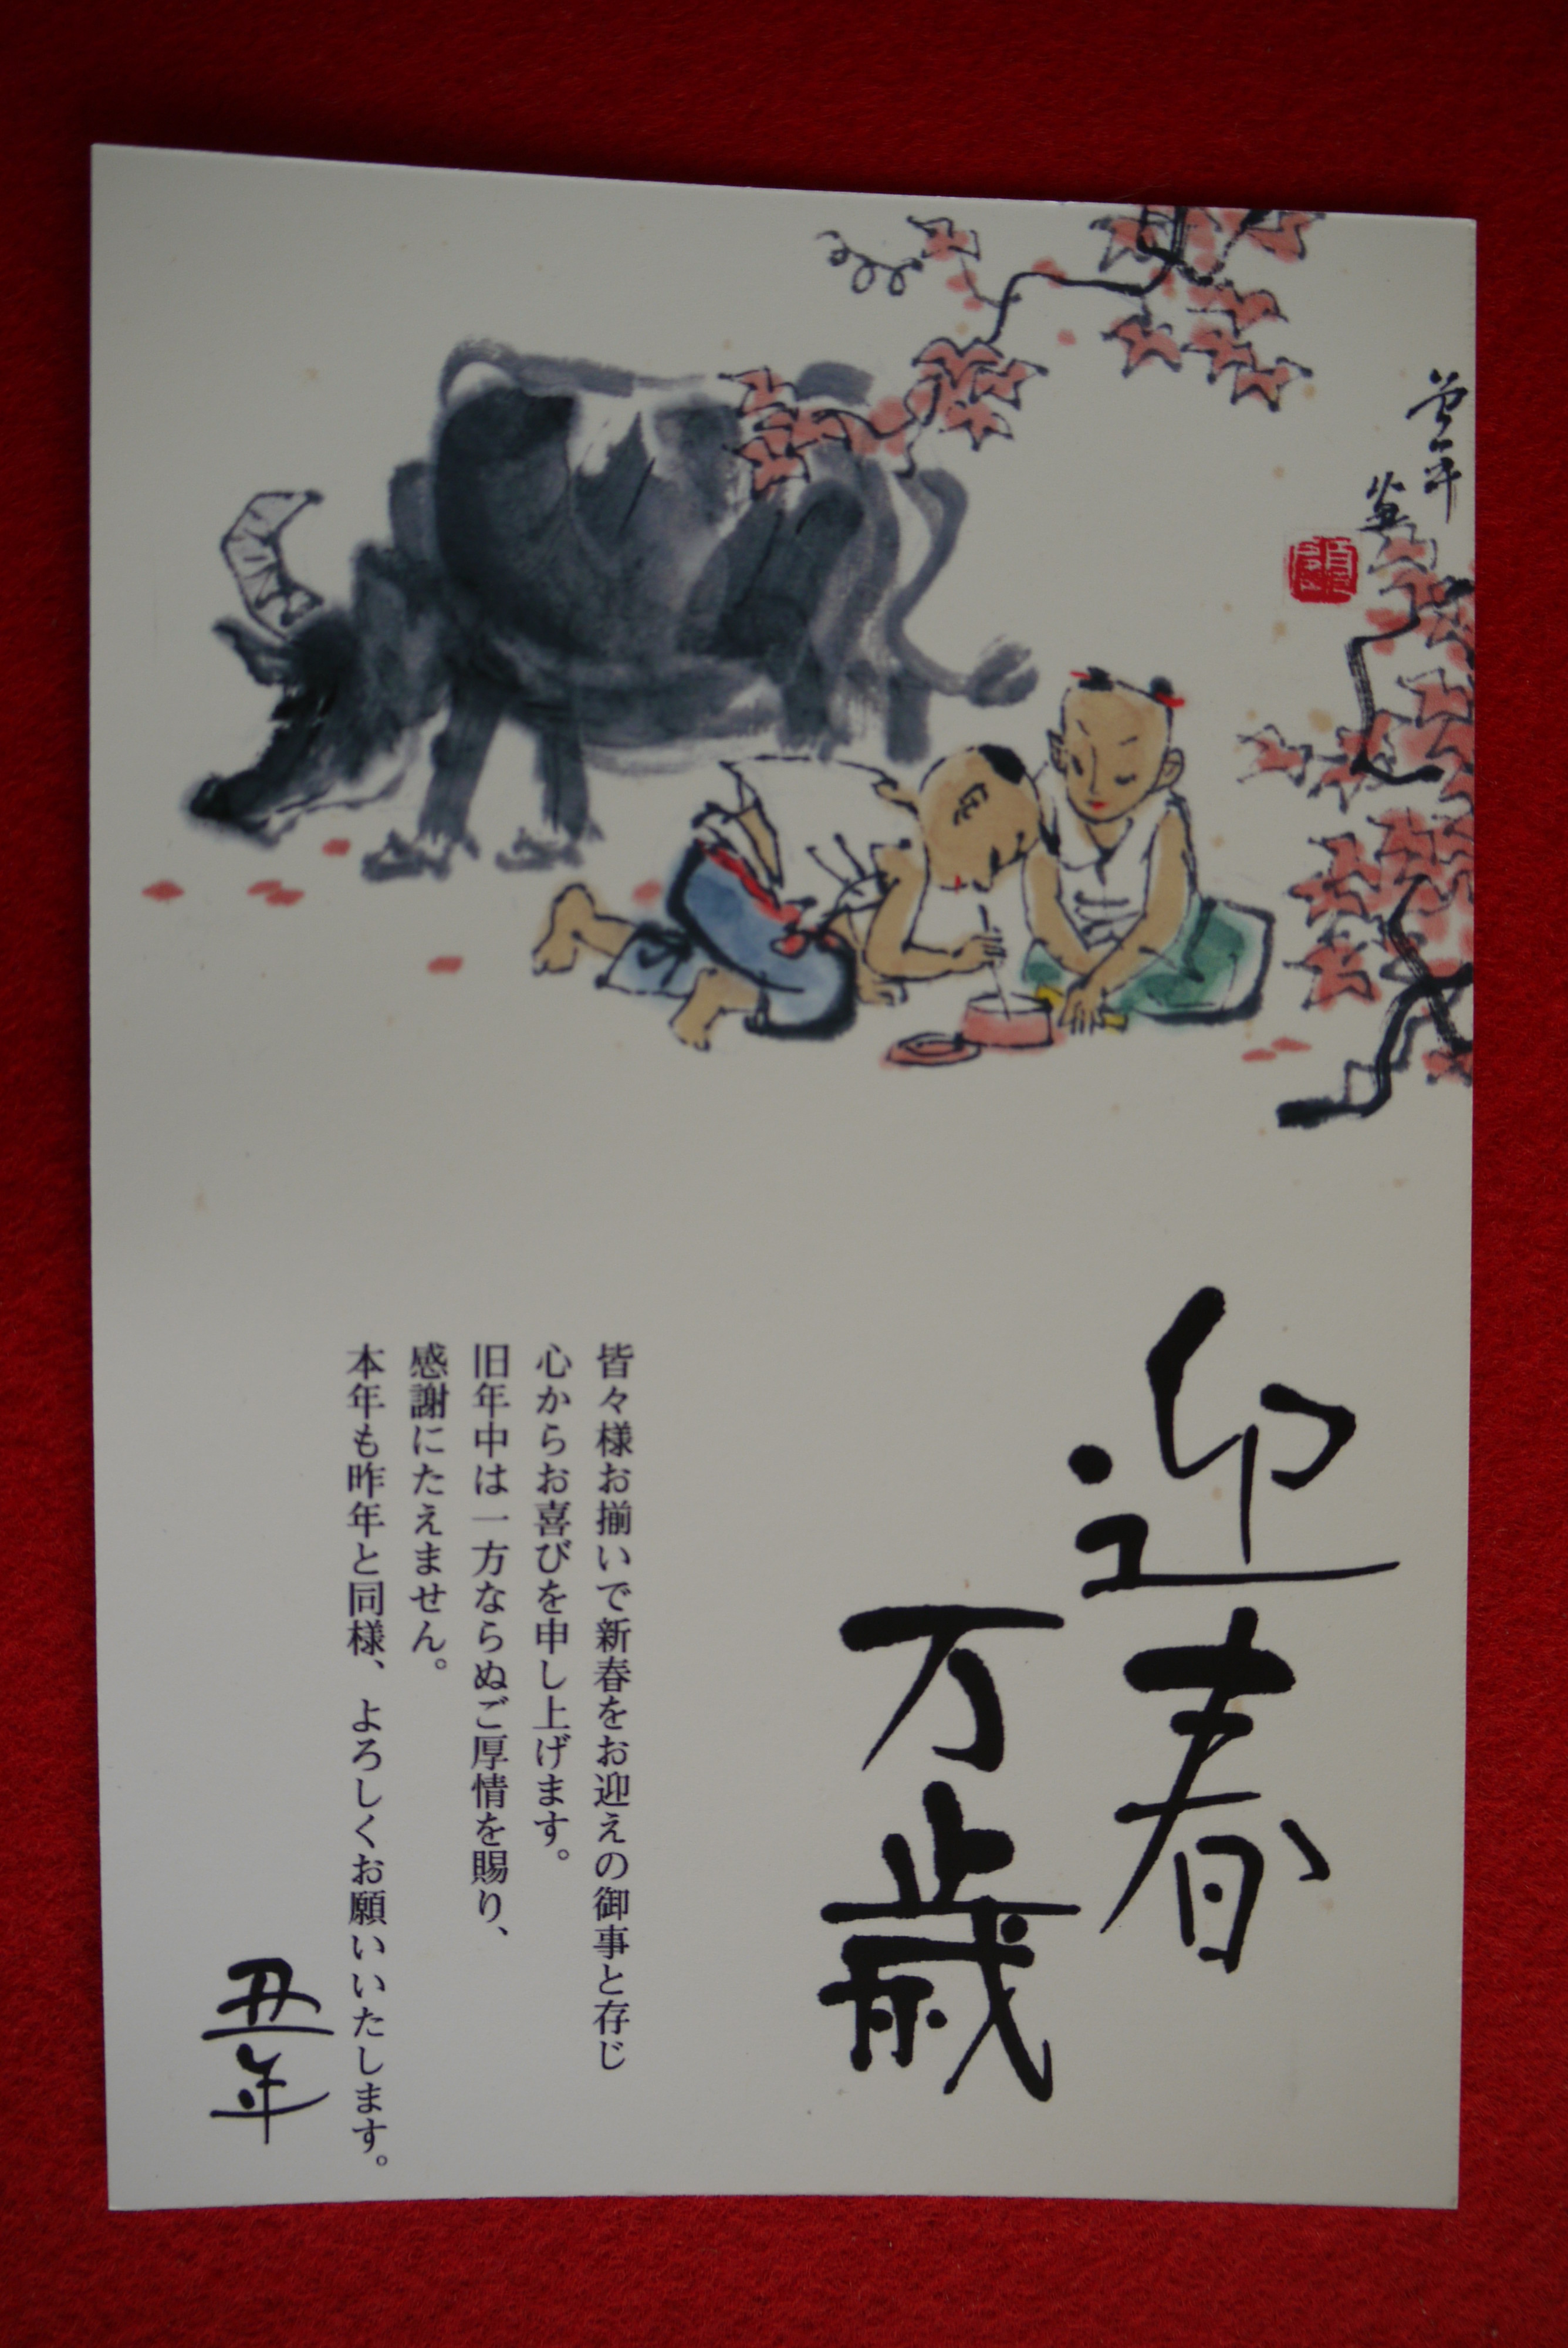 迎春
万歳
皆々様お揃いで新春をお迎えの御事と存じ
心からお喜びを申し上げます。
旧年中は一方ならぬご厚情を賜り、
感謝にたえません。
本年も昨年と同様、よろしくお願いいたします。
丑年